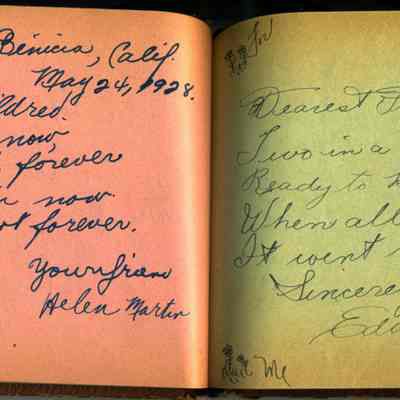 Benicia, Calif.
May 24, 1928.
ldred.
now,
forever
now
t forever.
Your friend
Helen Martin
For
Dearest
Two in a
Ready to
When all
It went
Sincere
Ed
Me